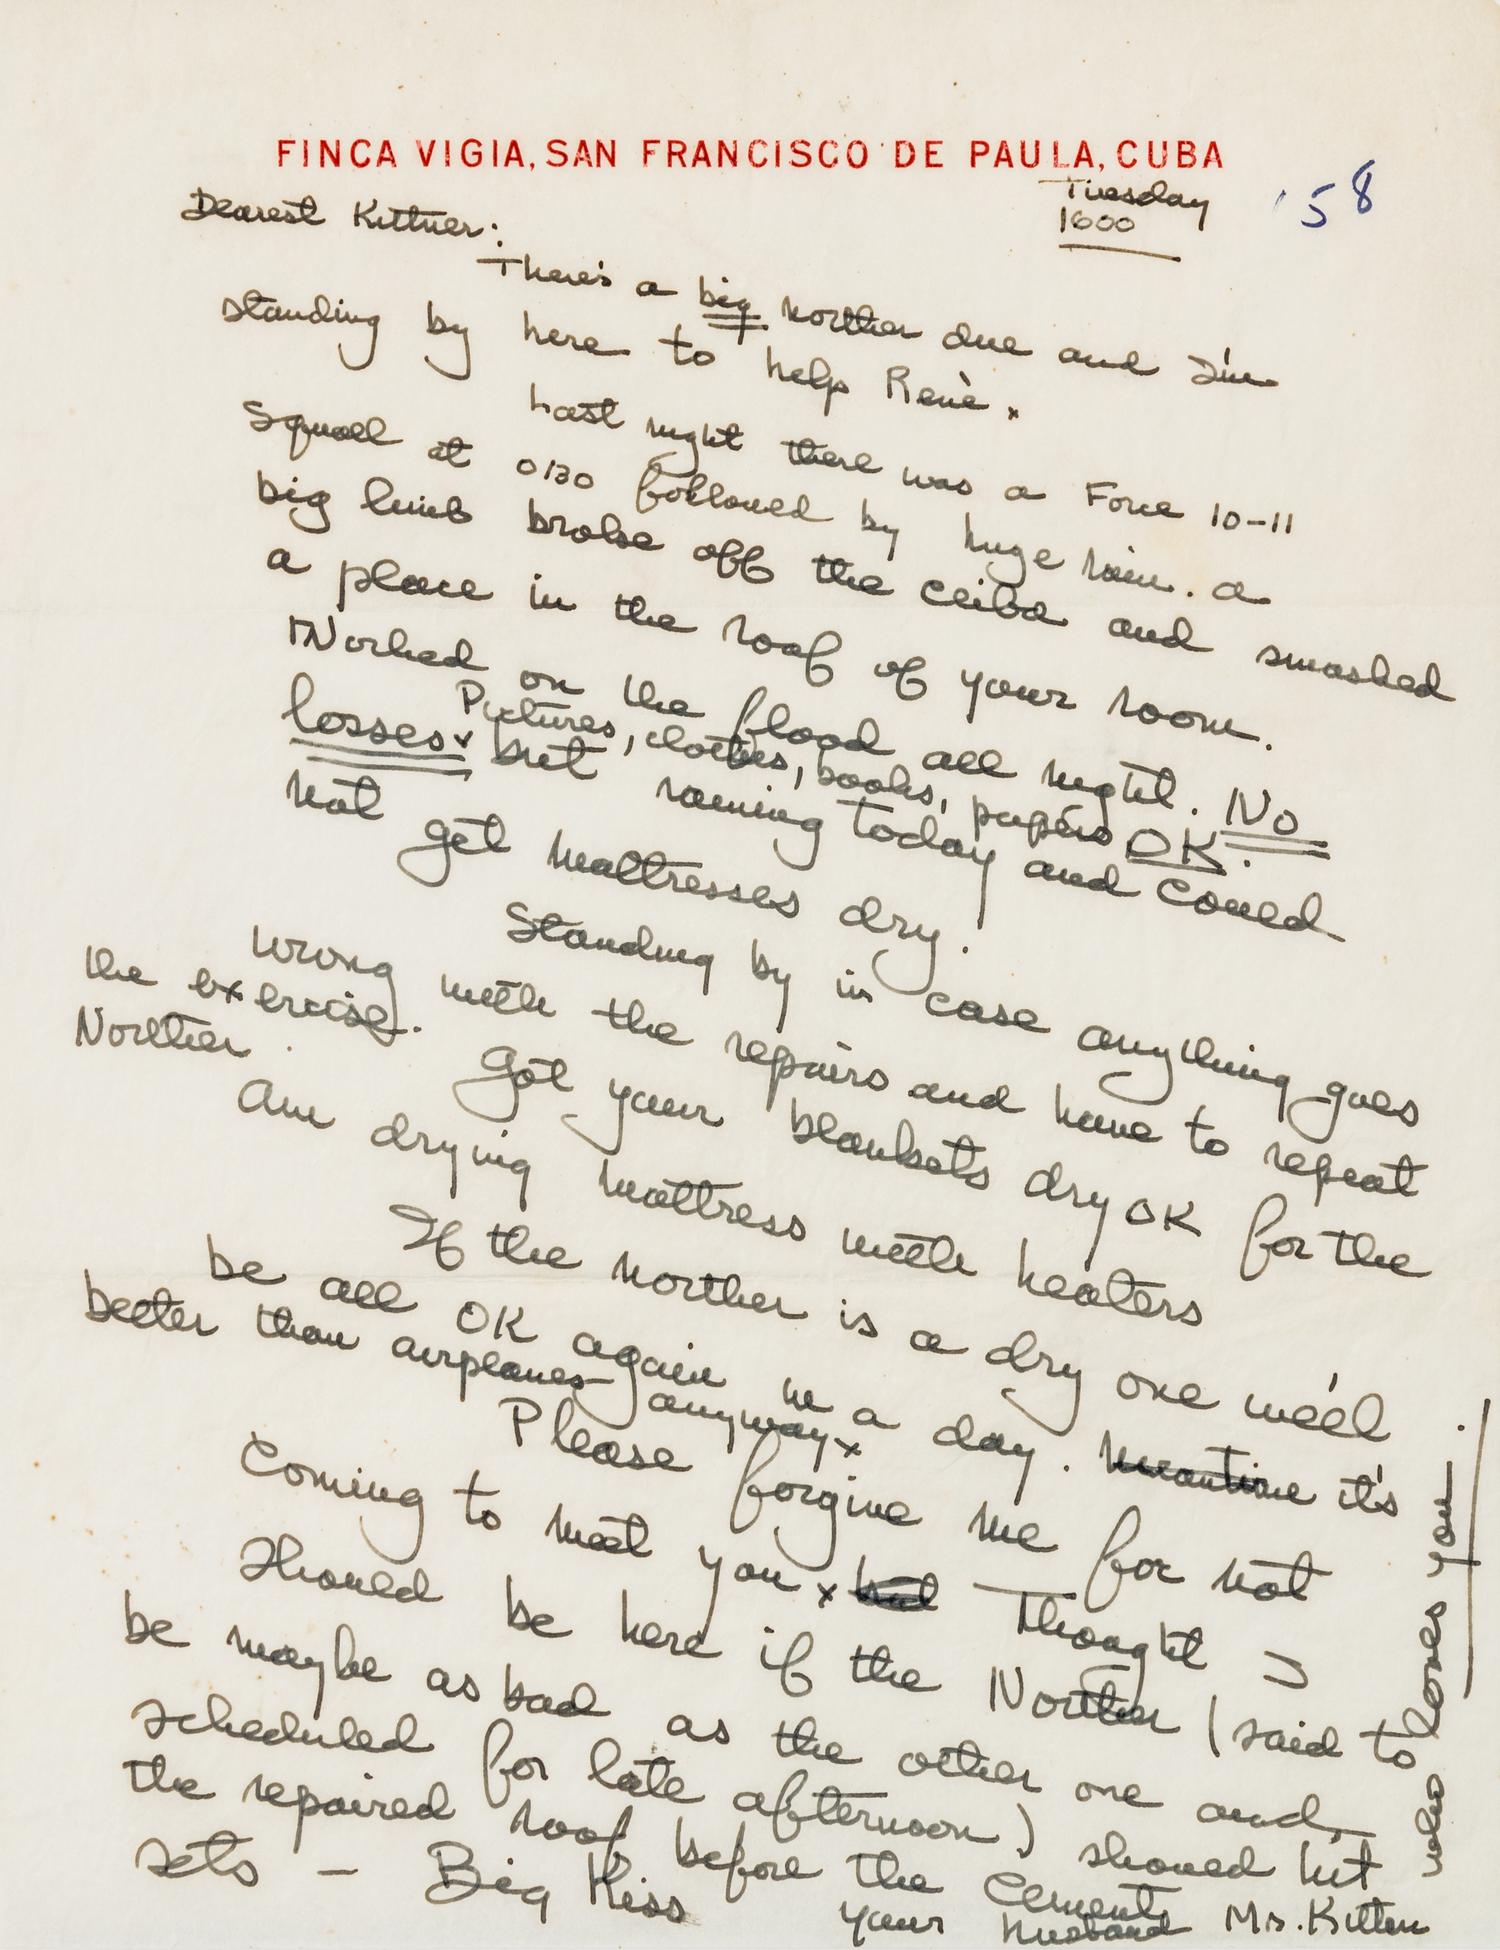 FINCA VIGIA, SAN FRANCISCO DE PAULA, CUBA
Tuesday
1600
'58
Dearest Kittner:
There's a big norther due and I'm
standing by here to help Renè x
Last night there was a Force 10-11
Squall at 0130 followed by huge rain. A
big limb broke off the ceiba and smashed
a place in the roof of your room.
Worked on the flood all night. No
losses x Pictures, clothes, books, papers OK.
but raining today and could
not get mattresses dry.
Standing by in case anything goes
wrong with the repairs and have to repeat
the exercise. Got your blankets dry OK for the
Norther.
Am drying mattress with heaters
If the norther is a dry one we'll
be all OK again in a day. meantime it's
better than airplanes anyway x
Please forgive me for not
coming to meet you x but Thought I
should be here if the Norther (said to
be maybe as bad as the other one and
scheduled for late afternoon) should hit
the repaired roof before the cement
sets – Big Kiss
your husband Mr. Kitten
who loves you